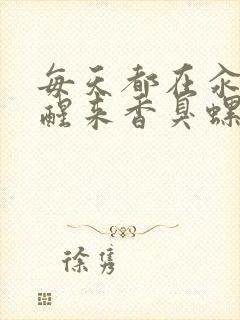 每天都在汆
醒来香臭螺
徐隽